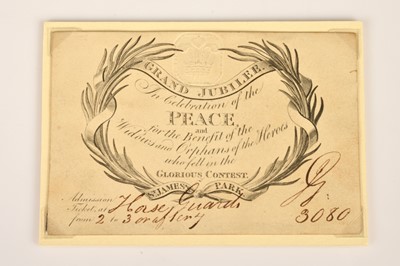 GRAND JUBILEE.
In Celebration of the
PEACE,
and
for the Benefit of the
Widows and Orphans of the Heroes
who fell in the
GLORIOUS CONTEST.
ST. JAMES'S PARK.
Admission
Ticket, at Horse Guards
from 2 to 3 o'
3080